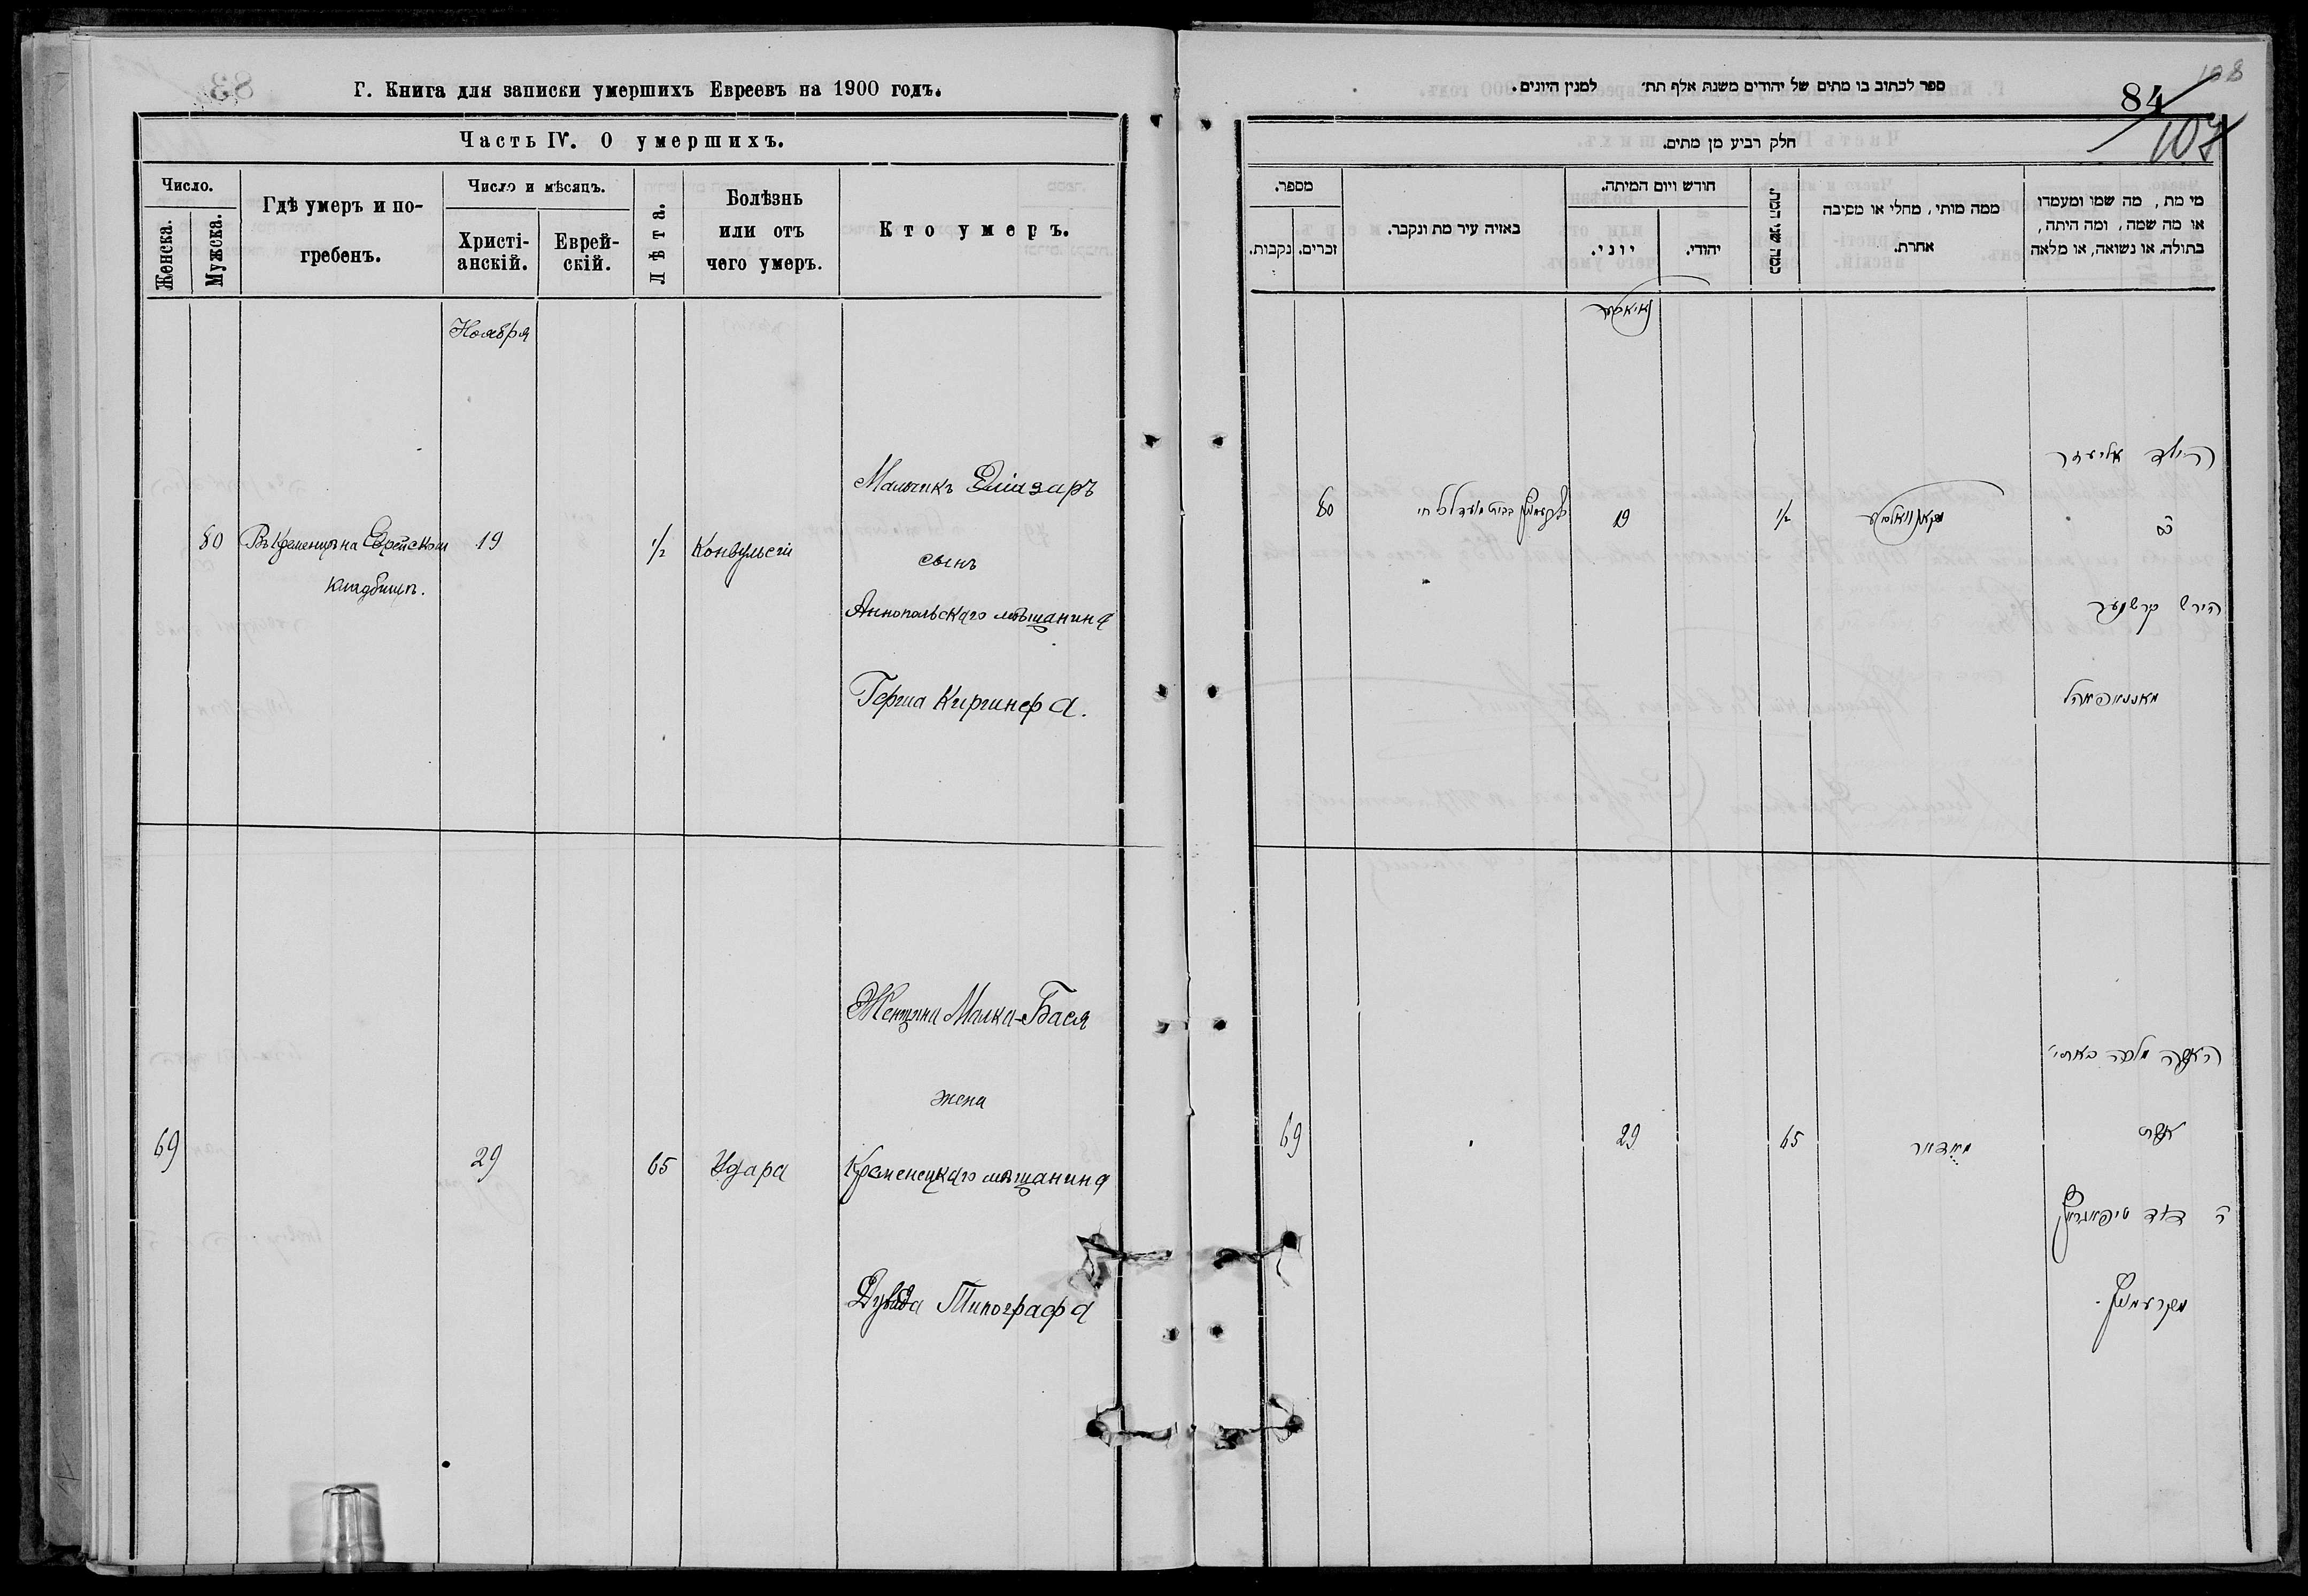 Г. Книга для записки умершихъ Евреевъ на 1900 годъ.
Часть IV. О умершихъ.
Число.
Женска.
Мужска.
Гдѣ умеръ и по-
гребенъ.
Число и мѣсяцъ.
Христі-
анскій.
Еврей-
скій.
Лѣта.
Болѣзнь
или отъ
чего умеръ.
Кто умеръ.
Ноября
80
Въ Кременцѣ на Еврейскомъ
кладбищѣ.
19
1/2
Конвульсій
Мальчикъ Еліазаръ
сынъ
Аннопольскаго мѣщанина
Герша Киршнера.
69
29
65
Удара
Женщина Малка-Бася
жена
Кременецкаго мѣщанина
Дувида Типографа
ספר לכתוב בו מתים של יהודים משנת אלף תת׳ למנין היונים.
84
107
108
חלק רביע מן מתים.
מספר.
זכרים.
נקבות.
באיזה עיר מת ונקבר.
חודש ויום המיתה.
יוני.
יהודי.
כמה שני המת.
ממה מותי, מחלי או מסיבה
אחרת.
מי מת, מה שמו ומעמדו
או מה שמה, ומה היתה,
בתולה, או נשואה, או מלאה
80
19
1/2
הילד אליעזר
הירש קרשנער
69
29
65
האשה מלכה באסי׳
אשת
ה דוד טיפאגראף
מקרעמניץ.